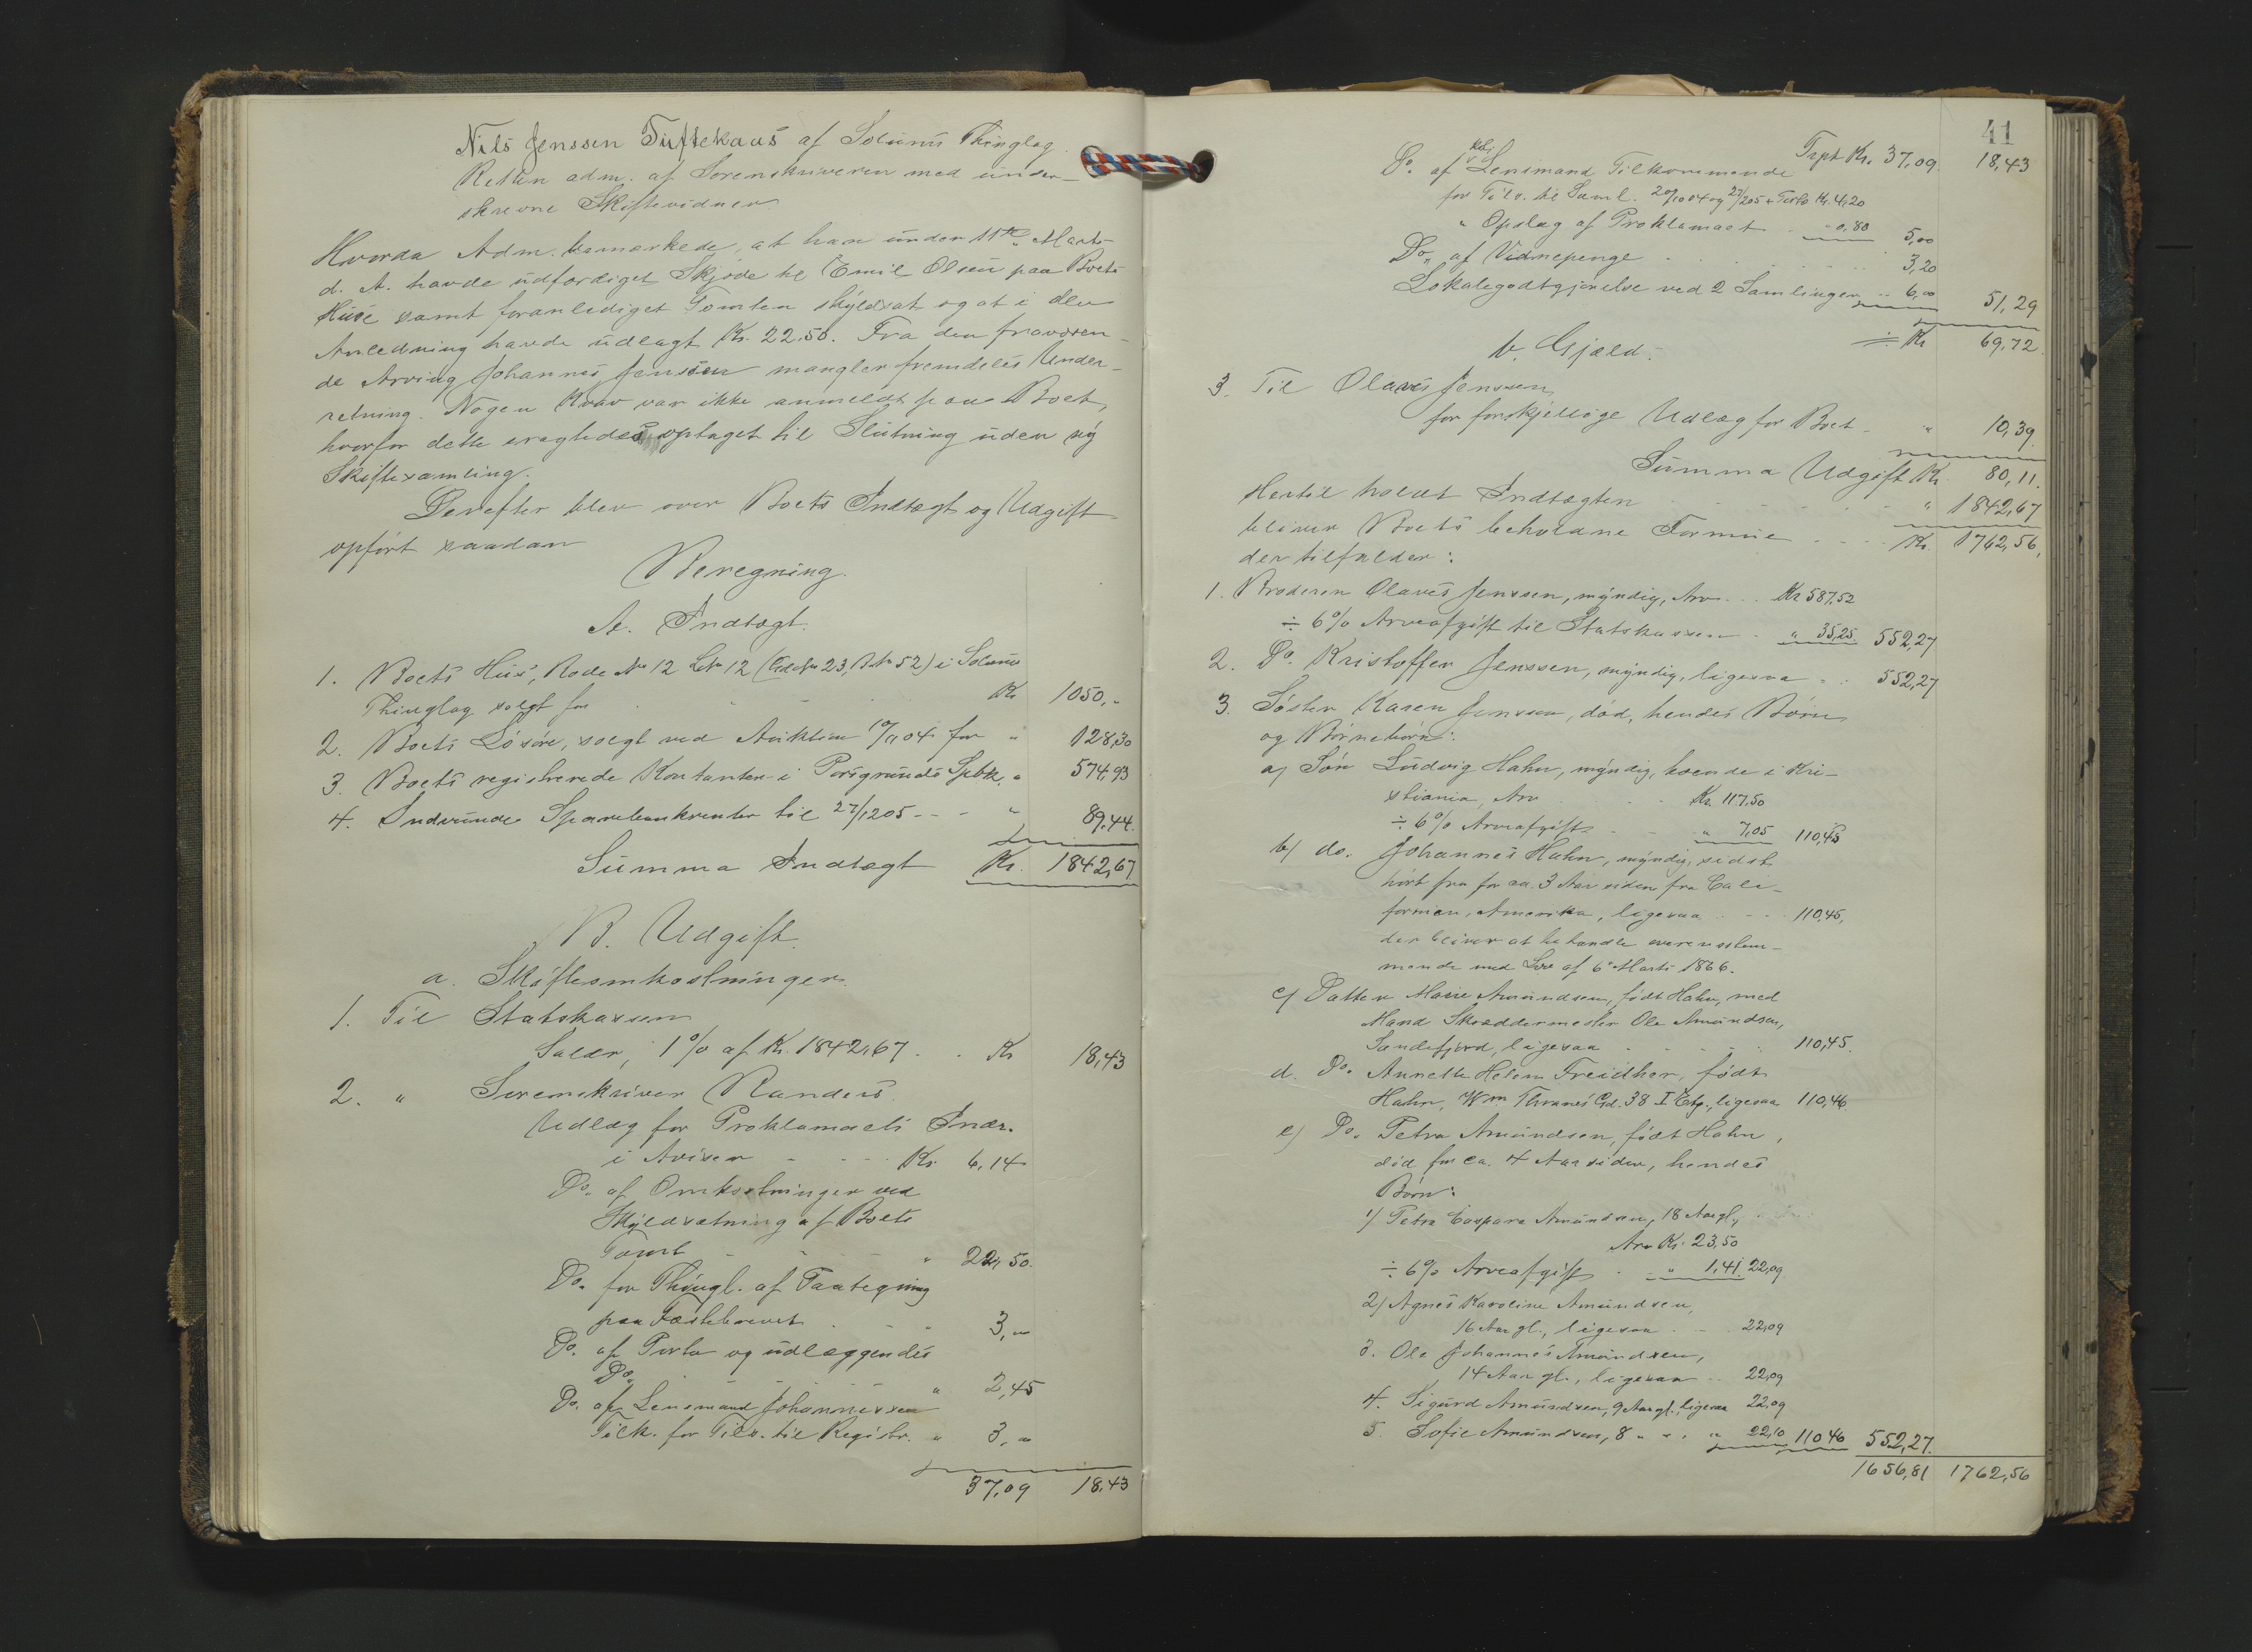 Nils Jenssen Tuftekaas af Solums Thinglag.
Retten adm. af Sorenskriveren med under-
skrevne Skiftevidner.
Hvorda Adm. bemærkede, at han under 11te Marts
d. A. havde udfærdiget Skjøde til Emil Olsen paa Boets
Huse samt foranlediget Tomten skyldsat og at i den
Anledning havde udlagt Kr. 22,50. Fra den fraværen-
de Arving Johannes Jenssen mangler fremdeles Under-
retning. Nogen Krav var ikke anmeldt paa Boet,
hvorfor dette eragtedes optaget til Slutning uden ny
Skiftesamling.
Derefter blev over Boets Indtægt og Udgift
opført saadan
Beregning.
A. Indtægt.
1. Boets Hus, Rode No 12 LNo 12 (GdNo 23, BNo 52) i Solums
Thinglag solgt for Kr. 1050,-
2. Boets Løsøre, solgt ved Auktion 19/11 04 for " 128,30
3. Boets registrerede Kontanter i Porsgrunds Spbk. " 574,93
4. Indvundne Sparebankrenter til 27/1205 - - - " 89,44.
Summa Indtægt Kr. 1842,67.
B. Udgift.
a. Skifteomkostninger.
1. Til Statskassen
Salær, 1% af Kr. 1842,67 . . Kr. 18,43
2. " Sorenskriver Randers
Udlæg for Proklamaets Indr.
i Aviser - - - - Kr. 6,14
Do. af Omkostninger ved
Skyldsætning af Boets
Tomt " 22,50.
Do. for Thingl. af Paategning
paa Fæstebrevet 3,"
Do. af Porto og udlæggendes
Do. " 2,45
Do. af Lensmand Johannessen
Tilk. for Tilv. til Registr. " 3,"
37,09 18,43
41
Trpt Kr. 37,09. 18,43
Do. af Lensmand Tilkommende
for Tilv. til Saml. 20/1004 og 27/205 + Porto Kr. 4,20
" Opslag af Proklamaet - 0,80 5,00
Do. af Vidnepenge 3,20
Lokalegodtgjørelse ved 2 Samlinger - 6,00 51,29
÷ Kr 69,72.
b. Gjæld.
3. Til Olaves Jenssen
for forskjellige Udlæg for Boet - " 10,39
Summa Udgift Kr. 80,11.
Hertil holdt Indtægten " 1842,67
bliver Boets beholdne Formue . . . . Kr. 1762,56,
der tilfalder:
1. Broderen Olaves Jenssen, myndig, Arv . . . Kr 587,52
÷ 6% Arveafgift til Statskassen . " 35,25 552,27
2. Do. Kristoffer Jenssen, myndig, ligesaa - . 552,27
3. Søster Karen Jenssen, død, hendes Børn
og Børnebørn:
a) Søn Ludvig Hahn, myndig, boende i Kri-
stiania, Arv Kr. 117,50
÷ 6% Arveafgift - " 7,05 110,45
b) do. Johannes Hahn, myndig, sidst
hørt fra for ca. 3 Aar siden fra Cali-
fornien, Amerika, ligesaa - - - 110,45,
der bliver at behandle overensstem-
mende med Lov af 6. Marts 1866.
c) Datter Marie Amundsen, født Hahn, med
Mand Skræddermester Ole Amundsen,
Sandefjord, ligesaa 110,45.
d. Do. Annette Helene Freidher, født
Hahn, Wm Thranes Gd. 38 I Etg., ligesaa 110,46
e) Do. Petra Amundsen, født Hahn,
død for ca. 4 Aar siden, hendes
Børn:
1) Petra Caspara Amundsen, 18 Aar gl.,
Arv Kr. 23,50
÷ 6% Arveafgift . " 1,41 22,09
2) Agnes Karoline Amundsen,
16 Aar gl., ligesaa - 22,09
3. Ole Johannes Amundsen,
14 Aar gl., ligesaa - 22,09
4. Sigurd Amundsen, 9 Aar gl., ligesaa 22,09
5. Sofie Amundsen, 8 " " " 22,10 110,46 552,27.
1656,81 1762,56